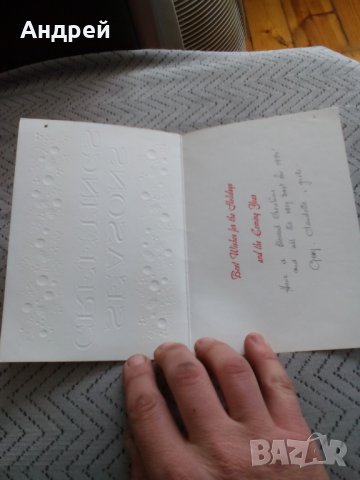 Андрей
SEASONS
GREETINGS
Best Wishes for the Holidays
and the Coming Year
Have a Blessed Christmas
and all the very best for 1991!
BAZAR